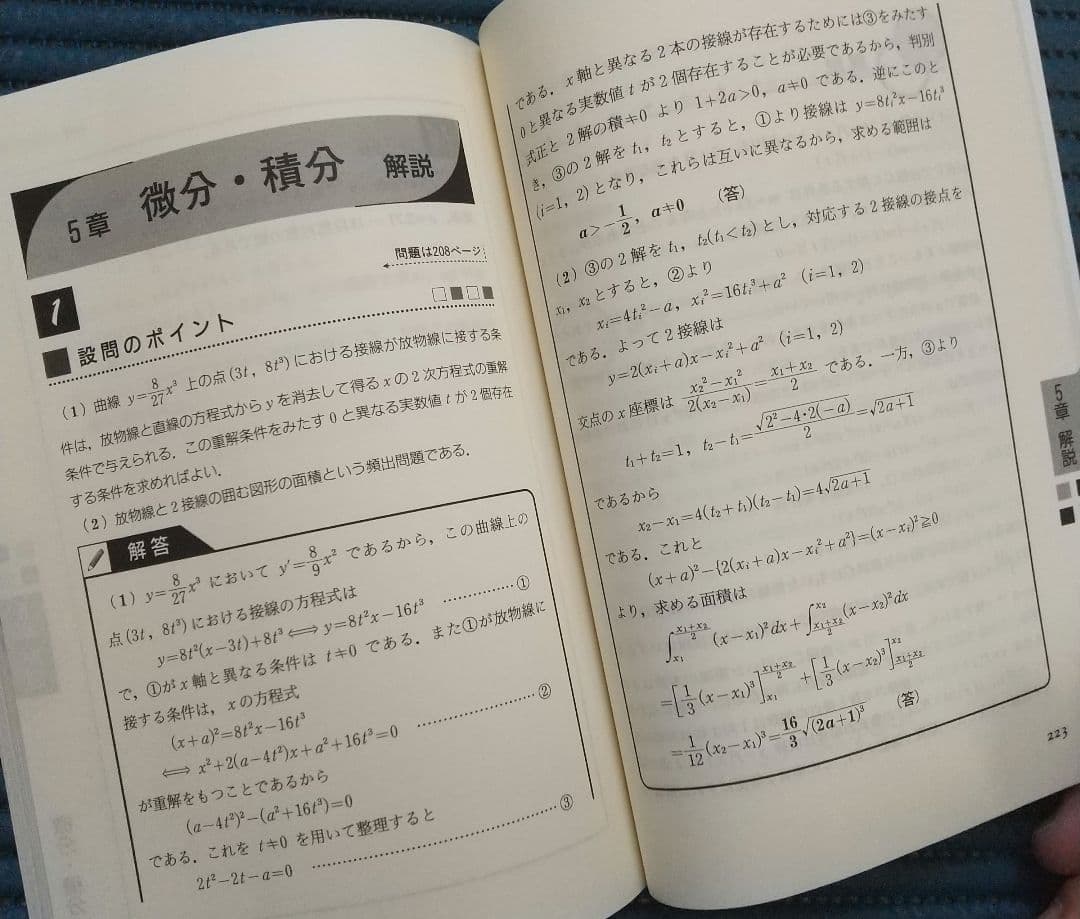 5章 微分・積分 解説
問題は208ページ
1
設問のポイント
(1) 曲線 y=8/27x³ 上の点(3t, 8t³)における接線が放物線に接する条
件は，放物線と直線の方程式からyを消去して得るxの2次方程式の重解
条件で与えられる．この重解条件をみたす0と異なる実数値tが2個存在
する条件を求めればよい．
(2) 放物線と2接線の囲む図形の面積という頻出問題である．
解答
(1) y=8/27x³ において y′=8/9x² であるから，この曲線上の
点(3t, 8t³)における接線の方程式は
y=8t²(x−3t)+8t³⟺y=8t²x−16t³ ………①
で，①がx軸と異なる条件は t≠0 である．また①が放物線に
接する条件は，xの方程式
(x+a)²=8t²x−16t³
⟺ x²+2(a−4t²)x+a²+16t³=0 ………②
が重解をもつことであるから
(a−4t²)²−(a²+16t³)=0
である．これを t≠0 を用いて整理すると
2t²−2t−a=0 ………③
である．x軸と異なる2本の接線が存在するためには③をみたす
0と異なる実数値tが2個存在することが必要であるから，判別
式正と2解の積≠0 より 1+2a>0, a≠0 である．逆にこのと
き，③の2解をt₁, t₂とすると，①より接線は y=8tᵢ²x−16tᵢ³
(i=1, 2)となり，これらは互いに異なるから，求める範囲は
a>−1/2, a≠0 (答)
(2) ③の2解をt₁, t₂(t₁<t₂)とし，対応する2接線の接点を
x₁, x₂とすると，②より
xᵢ=4tᵢ²−a, xᵢ²=16tᵢ³+a² (i=1, 2)
である．よって2接線は
y=2(xᵢ+a)x−xᵢ²+a² (i=1, 2)
交点のx座標は (x₂²−x₁²)/2(x₂−x₁)=(x₁+x₂)/2 である．一方，③より
t₁+t₂=1, t₂−t₁=√(2²−4・2(−a))/2=√(2a+1)
であるから
x₂−x₁=4(t₂+t₁)(t₂−t₁)=4√(2a+1)
である．これと
(x+a)²−{2(xᵢ+a)x−xᵢ²+a²}=(x−xᵢ)²≧0
より，求める面積は
∫_{x₁}^{(x₁+x₂)/2}(x−x₁)²dx+∫_{(x₁+x₂)/2}^{x₂}(x−x₂)²dx
=[1/3(x−x₁)³]_{x₁}^{(x₁+x₂)/2}+[1/3(x−x₂)³]_{(x₁+x₂)/2}^{x₂}
=1/12(x₂−x₁)³=16/3√(2a+1)³ (答)
5章 解説
223